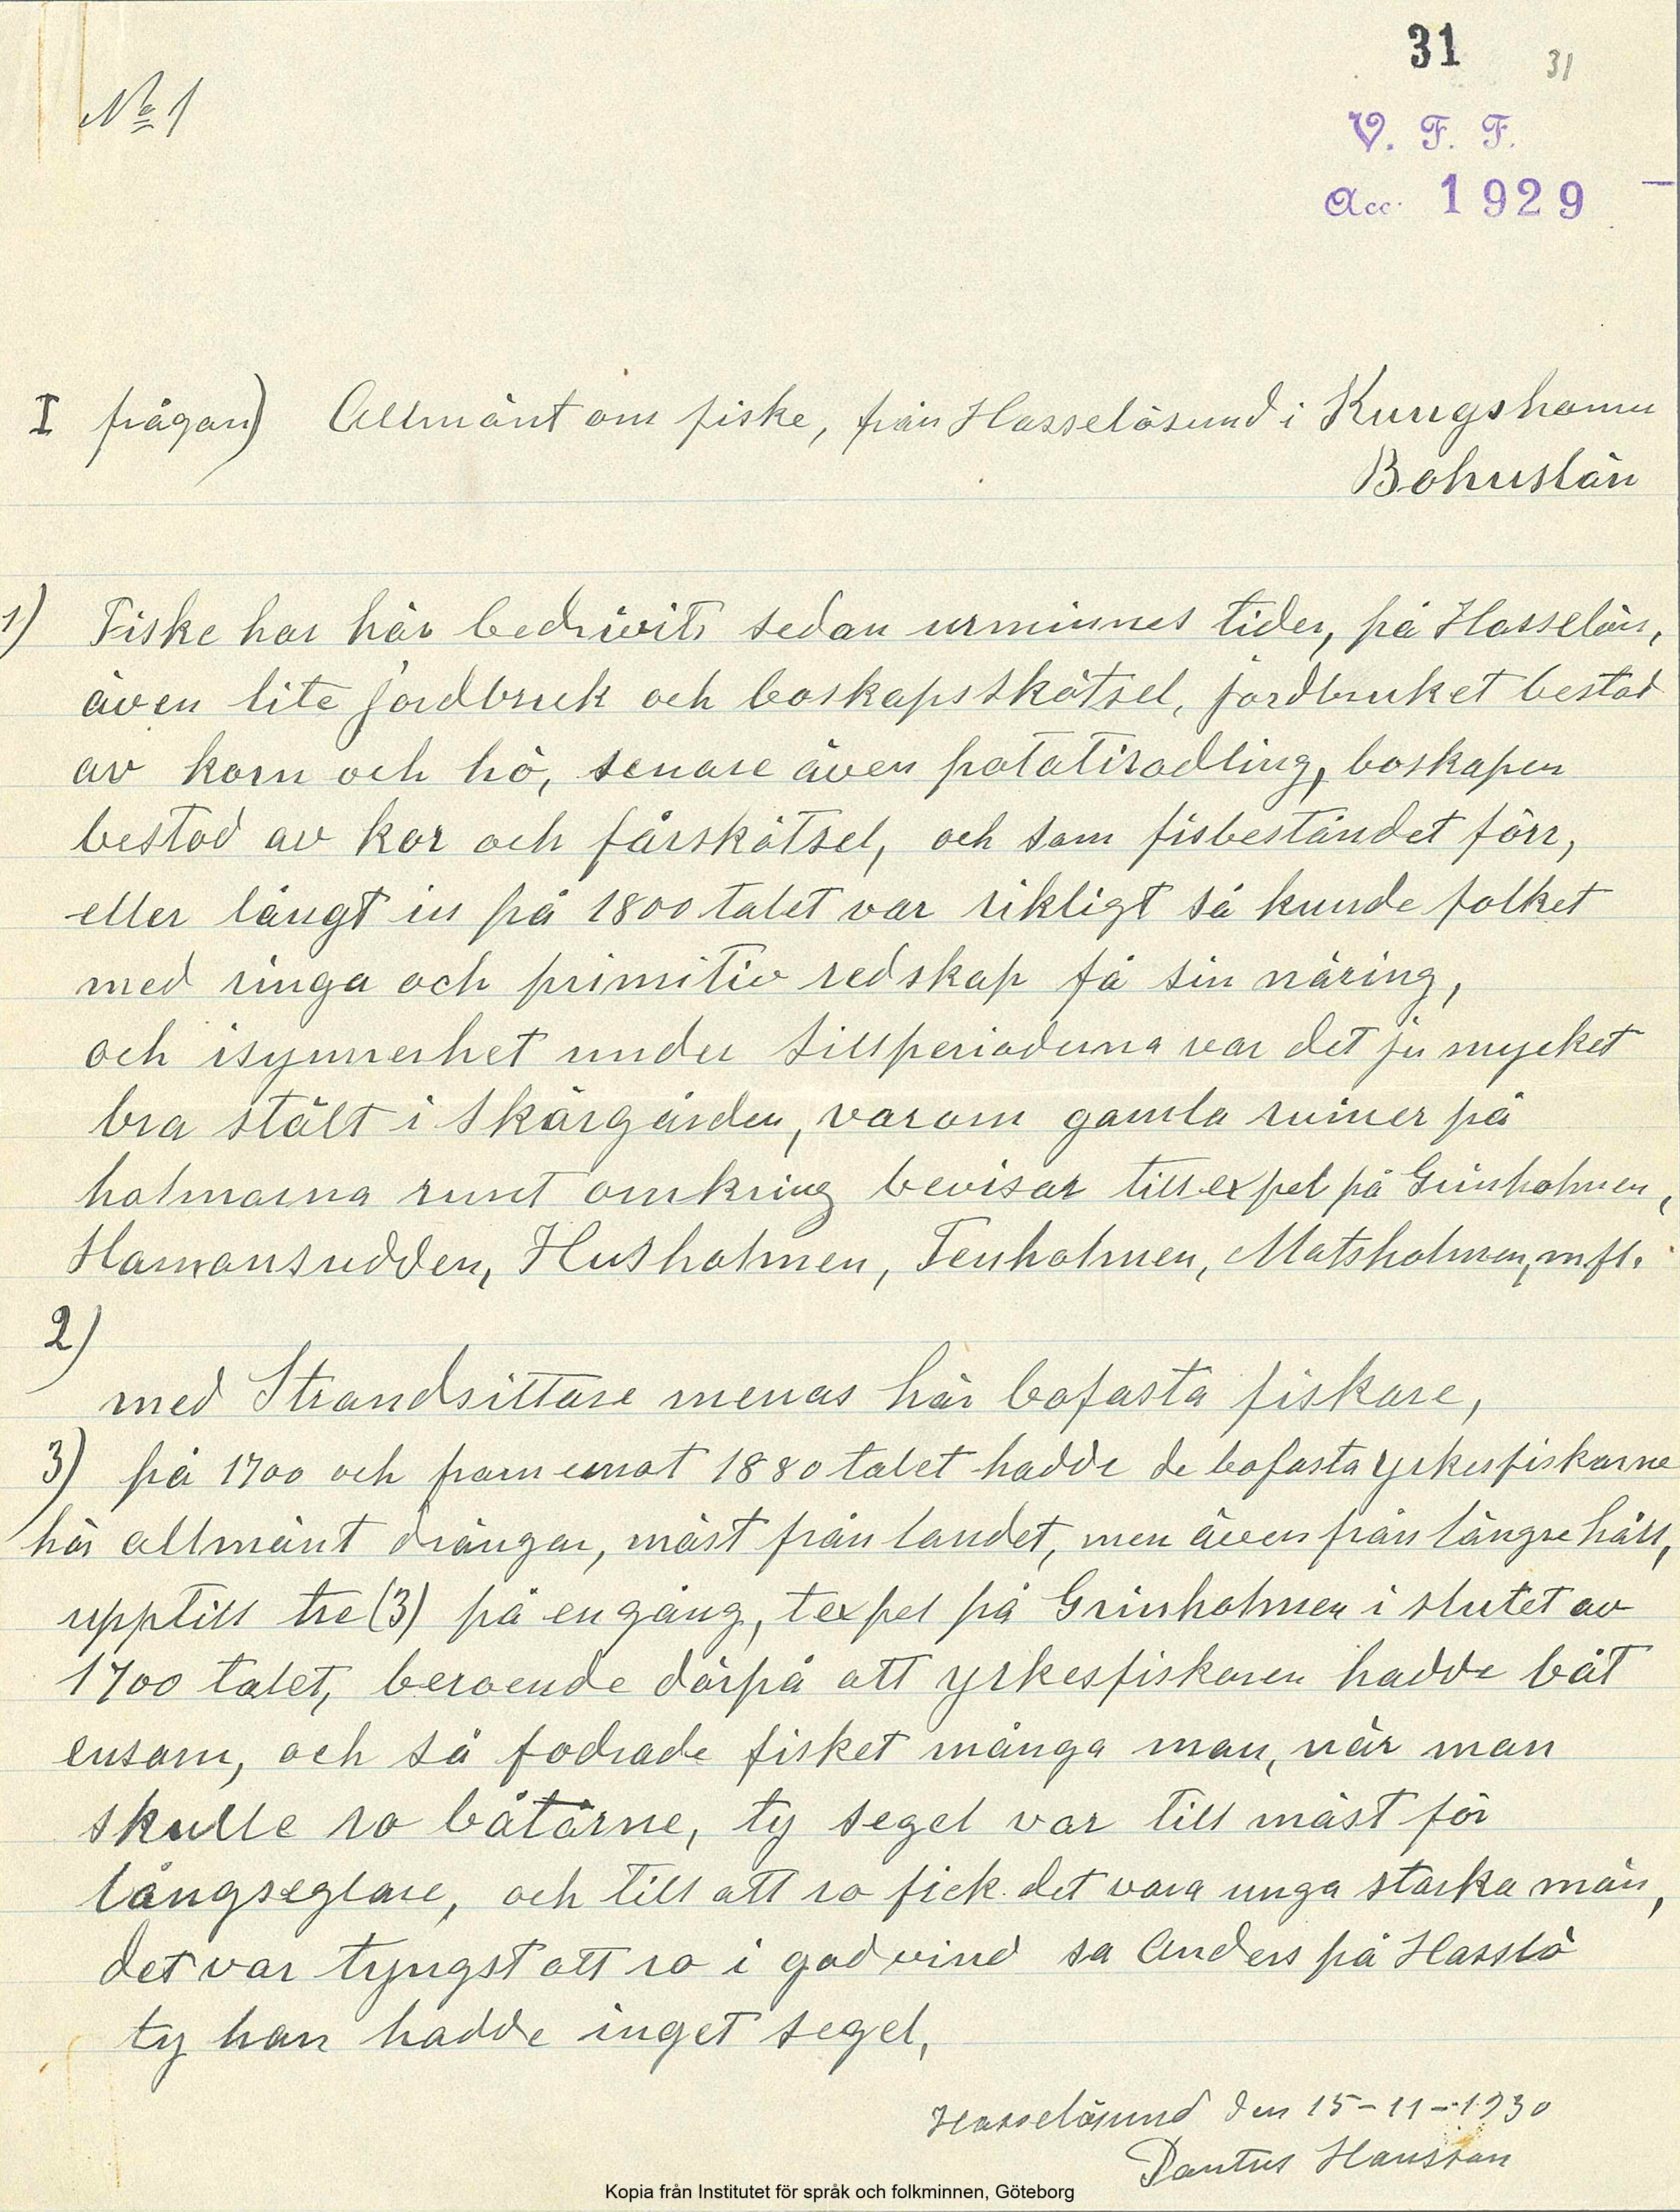 31 31
No 1
V. F. F.
Acc. 1929 —
I frågan) Allmänt om fiske, från Hasselösund i Kungshamn
Bohuslän
1) Fiske har här bedrivits sedan urminnes tider, på Hasselön,
även lite jordbruk och boskapsskötsel, jordbruket bestod
av korn och hö, senare även potatisodling, boskapen
bestod av kor och fårskötsel, och som fisbeståndet förr,
eller långt in på 1800 talet var rikligt så kunde folket
med ringa och primitiv redskap få sin näring,
och isynnerhet under sillperioderna var det ju mycket
bra stält i skärgården, varom gamla ruiner på
holmarna runt omkring bevisar till expel på Grinholmen,
Hamansudden, Husholmen, Tenholmen, Matsholmen, m.fl.
2)
med Strandsittare menas här bofasta fiskare,
3) på 1700 och fram emot 1880 talet hadde de bofasta yrkesfiskarne
här allmänt drängar, mäst från landet, men även från längre håll,
upptill tre (3) på en gång, t expel på Grinholmen i slutet av
1700 talet, beroende därpå att yrkesfiskaren hadde båt
ensam, och så fodrade fisket många man, när man
skulle ro båtarne, ty segel var till mäst för
långseglare, och till att ro fick det vara unga starka män,
det var tyngst att ro i god vind sa Anders på Hasslö
ty han hadde inget segel,
Hasselösund den 15-11-1930
Pantus Hansson
Kopia från Institutet för språk och folkminnen, Göteborg